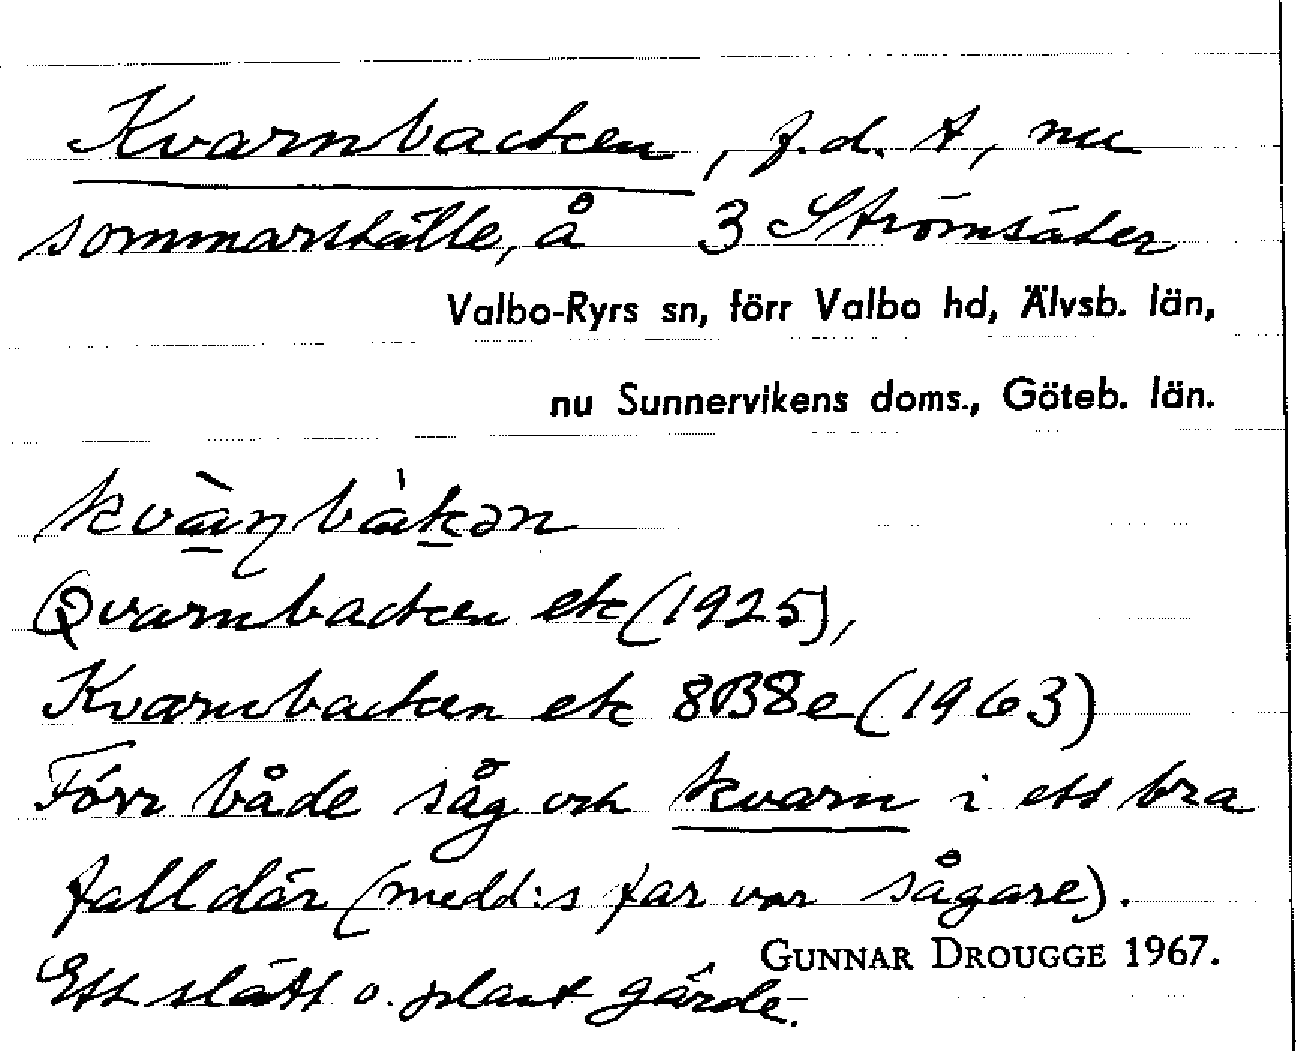 Kvarnbacken, f.d. t, nu
sommarställe, å 3 Strömsäter
Valbo-Ryrs sn, förr Valbo hd, Älvsb. län,
nu Sunnervikens doms., Göteb. län.
Qvarnbacken ek (1925),
Kvarnbacken ek 8B8e (1963)
Förr både såg och kvarn i ett bra
fall där (medd:s far var sågare).
GUNNAR DROUGGE 1967.
Ett slätt o. plant gärde.